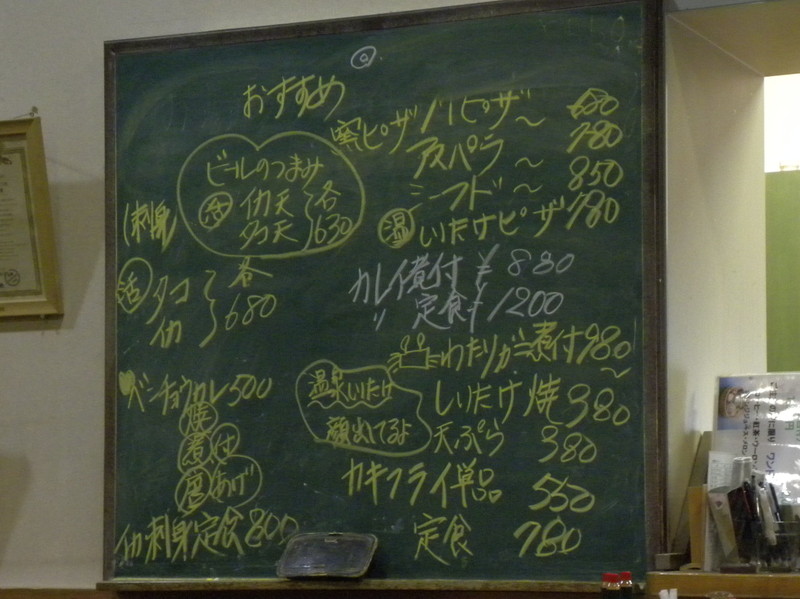 おすすめ
ビールのつまみ
活 イカ天 各
タコ天 630
刺身
活 タコ 各
イカ 680
ベンチョウカレ 500
焼
煮付
唐あげ
イカ刺身定食 800
窯ピザ ノリピザ〜 680
アスパラ 〜 780
シーフード〜 850
温 いたけピザ 780
カレイ煮付 ¥880
〃 定食 ¥1200
わたりガニ煮付 980〜
温泉しいたけ
顔出してるよ
しいたけ焼 380
天ぷら 380
カキフライ単品 550
定食 780